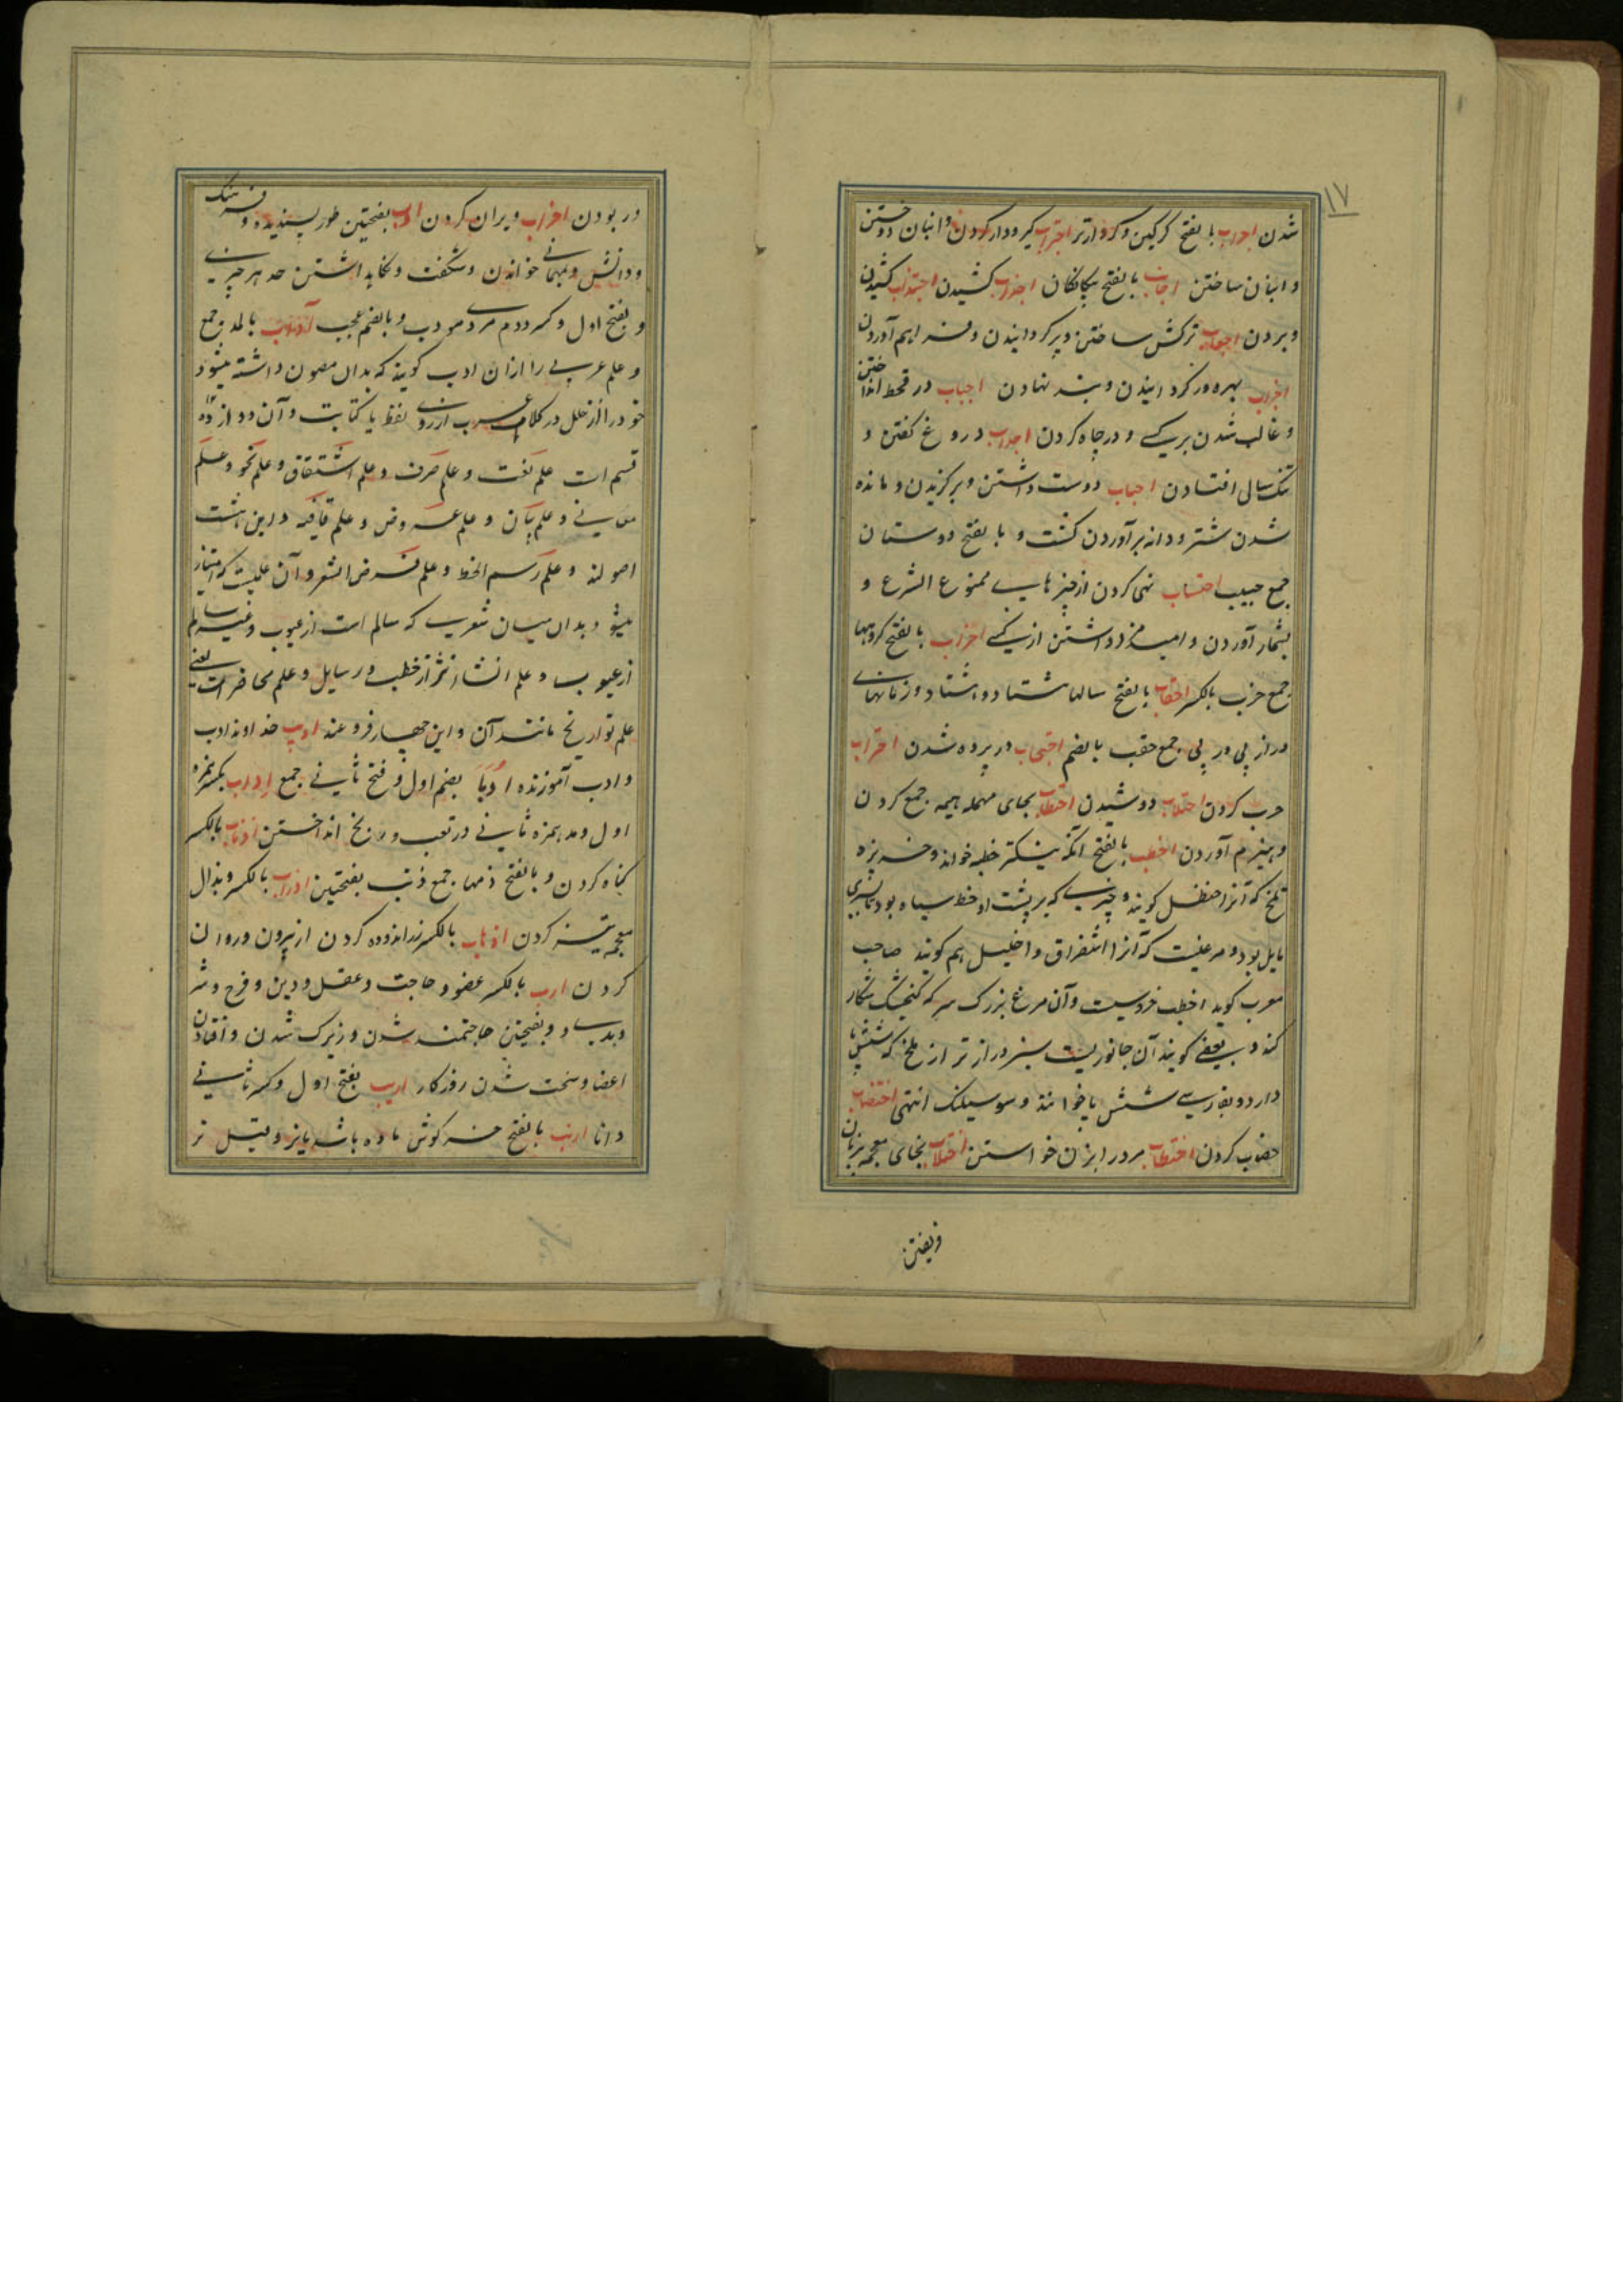 ۱۷
شدن اجرب بالفتح کرکین و کرد دارتر اجتراب کیر و دار کردن و انبان دوختن
و انبان ساختن اجانب بالفتح بیکانکان اجذاب کشیدن اجتذاب کشیدن
و بردن اجعاب ترکش ساختن و پر کردانیدن و فراهم آوردن
بهره ور کردانیدن و بند نهادن اجباب در قحط انداختن
و غالب شدن بر کسی و در چاه کردن اجداب دروغ کفتن و
تنک سالی افتادن احباب دوست داشتن و برکزیدن و مانده
شدن شتر و دانه برآوردن کشت و بالفتح دوستان
جمع حبیب احتساب نهی کردن از چیزهای ممنوع الشرع و
بشمار آوردن و امید مزد داشتن از کسی احزاب بالفتح کروهها
جمع حزب بالکسر احقاب بالفتح سالها هشتاد و هشتاد و زمانهای
دراز پی در پی جمع حقب بالضم احتجاب در پرده شدن احتراب
حرب کردن احتلاب دوشیدن احتطاب بحای مهمله هیمه جمع کردن
و هیزم آوردن اخطب بالفتح آنکه نیکتر خطبه خواند و خربزه
تلخ که آنرا حنظل کویند و چیزی که بر پشت او خط سیاه بود
مایل بود و مرغیست که آنرا شقراق و اخیل هم کویند صاحب
معرب کوید اخطب و آن مرغ بزرک سر که کنجشک شکار
کند و بعضی کویند آن جانوریست سبز دراز تر از ملخ که شش پا
دارد و بفارسی شش پا خوانند و انتهی اختضاب
خضاب کردن اختطاب مرد را بزن خواستن اختلاب بخای معجمه بزبان
فریفتن
در بودن اخراب ویران کردن ادب بفتحتین طور پسندیده و فرهنک
و دانش و بمهمانی خواندن و شکفت و نکاهداشتن حد هر چیزی
و بفتح اول و کسر دوم مردی مودب و بالضم عجب آداب بالمد جمع
و علم عربی را ازان ادب کویند که بدان مصون داشته میشود
خود را از خلل در کلام عرب از روی لفظ یا کتابت و آن دوازده
قسم است علم لغت و علم صرف و علم اشتقاق و علم نحو و علم
معانی و علم بیان و علم عروض و علم قافیه و این هشت
اصولند و علم رسم الخط و علم قرض الشعر و آن علمیست که امتیاز
میشود بدان میان شعری که سالم است از عیوب و غیر سالم
از عیوب و علم انشاء نثر از خطب و رسایل و علم محاضرات یعنی
علم تواریخ مانند آن و این چهار فروعند ادیب خداوند ادب
و ادب آموزنده ادبا بضم اول و فتح ثانی جمع اداب بکسر همزه
اول و مد همزه ثانی در تعب و رنج انداختن اذناب بالکسر
کناه کردن و بالفتح دمها جمع ذنب بفتحتین اذراب بالکسر و بذال
معجمه تیز کردن اذهاب بالکسر زراندوده کردن از بیرون و روان
کردن ارب بالکسر عضو و حاجت و عقل و دین و فرج و شر
و بدی و بفتحتین حاجتمند شدن و زیرک شدن و افتادن
اعضا و سخت شدن روزکار اریب بفتح اول و کسر ثانی
دانا ارنب بالفتح خرکوش ماده باشد یا نر و قیل نر